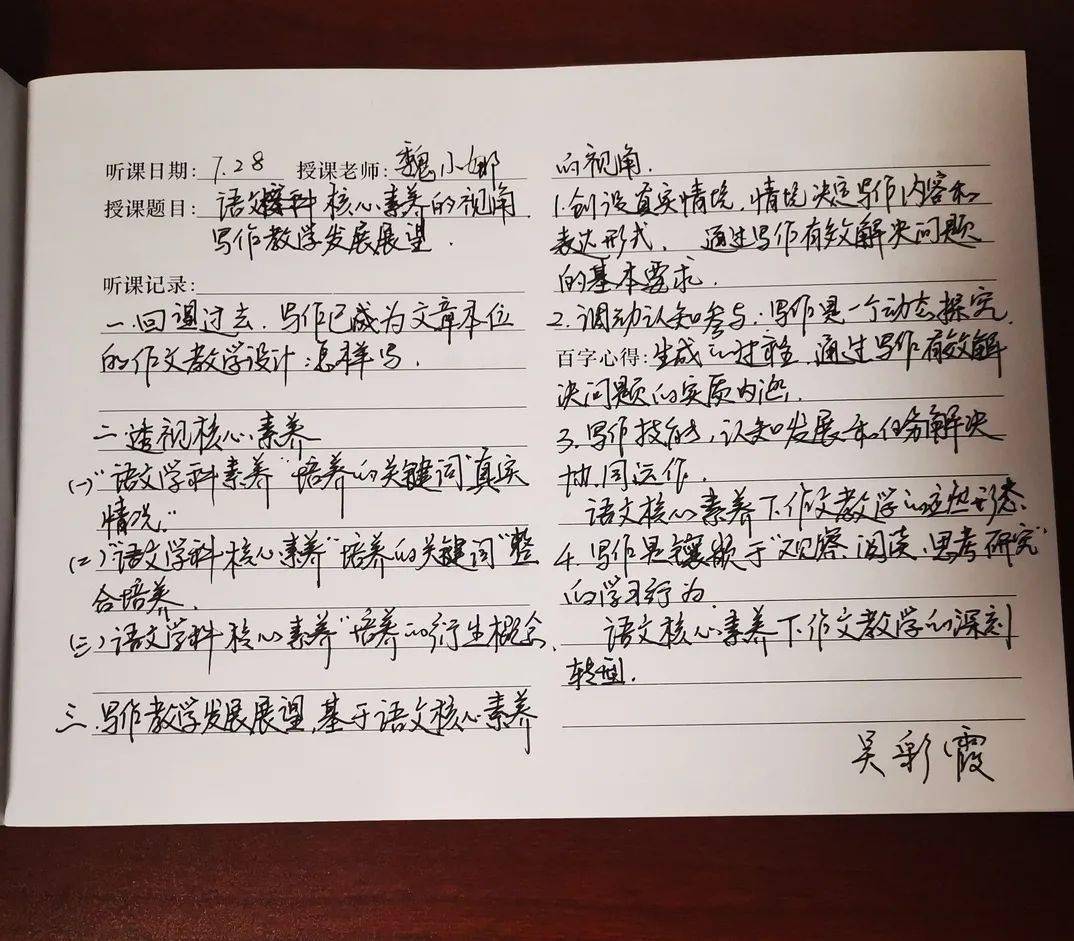 听课日期: 7.28 授课老师: 魏小娜
授课题目: 语文学科核心素养的视角
写作教学发展展望.
听课记录:
一.回溯过去.写作已成为文章本位
的作文教学设计:怎样写.
二.透视核心素养
(一)"语文学科素养"培养的关键词"真实
情况"
(二)"语文学科核心素养"培养的关键词"整
合培养.
(三)语文学科核心素养"培养的衍生概念.
三.写作教学发展展望.基于语文核心素养
的视角.
1.创设真实情境.情境决定写作内容和
表达形式. 通过写作有效解决问题
的基本要求.
2.调动认知参与:写作是一个动态探究.
百字心得: 生成的过程. 通过写作有效解
决问题的实质内涵.
3.写作技能,认知发展和任务解决
协同运作.
语文核心素养下作文教学的应然形态.
4.写作是镶嵌于"观察.阅读.思考研究"
的学习行为.
语文核心素养下作文教学的深刻
转型.
吴彩霞